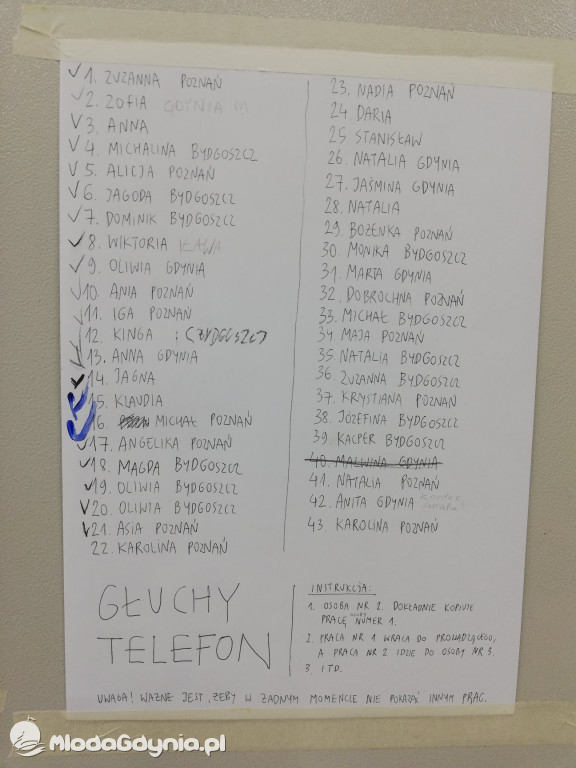 1. ZUZANNA POZNAŃ
2. ZOFIA GDYNIA
3. ANNA
4. MICHALINA BYDGOSZCZ
5. ALICJA POZNAŃ
6. JAGODA BYDGOSZCZ
7. DOMINIK BYDGOSZCZ
8. WIKTORIA IŁAWA
9. OLIWIA GDYNIA
10. ANIA POZNAŃ
11. IGA POZNAŃ
12. KINGA : (BYDGOSZCZ)
13. ANNA GDYNIA
14. JAGNA
15. KLAUDIA
16. MICHAŁ POZNAŃ
17. ANGELIKA POZNAŃ
18. MAGDA BYDGOSZCZ
19. OLIWIA BYDGOSZCZ
20. OLIWIA BYDGOSZCZ
21. ASIA POZNAŃ
22. KAROLINA POZNAŃ
23. NADIA POZNAŃ
24. DARIA
25. STANISŁAW
26. NATALIA GDYNIA
27. JAŚMINA GDYNIA
28. NATALIA
29. BOŻENKA POZNAŃ
30. MONIKA BYDGOSZCZ
31. MARTA GDYNIA
32. DOBROCHNA POZNAŃ
33. MICHAŁ BYDGOSZCZ
34. MAJA POZNAŃ
35. NATALIA BYDGOSZCZ
36. ZUZANNA BYDGOSZCZ
37. KRYSTIANA POZNAŃ
38. JÓZEFINA BYDGOSZCZ
39. KACPER BYDGOSZCZ
40. MALWINA GDYNIA
41. NATALIA POZNAŃ
42. ANITA GDYNIA
43 KAROLINA POZNAŃ
GŁUCHY
TELEFON
INSTRUKCJA:
1. OSOBA NR 2. DOKŁADNIE KOPIUJE
PRACĘ OSOBY NUMER 1.
2. PRACA NR 1 WRACA DO PROWADZĄCEGO,
A PRACA NR 2 IDZIE DO OSOBY NR 3.
3. ITD.
UWAGA! WAŻNE JEST, ŻEBY W ŻADNYM MOMENCIE NIE POKAZAĆ INNYM PRAC.
MlodaGdynia.pl